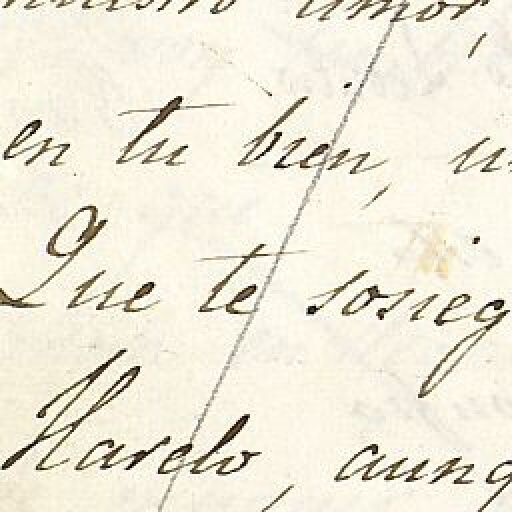 amor,
en tu bien, u
Que te sosieg
Harelo, aunq